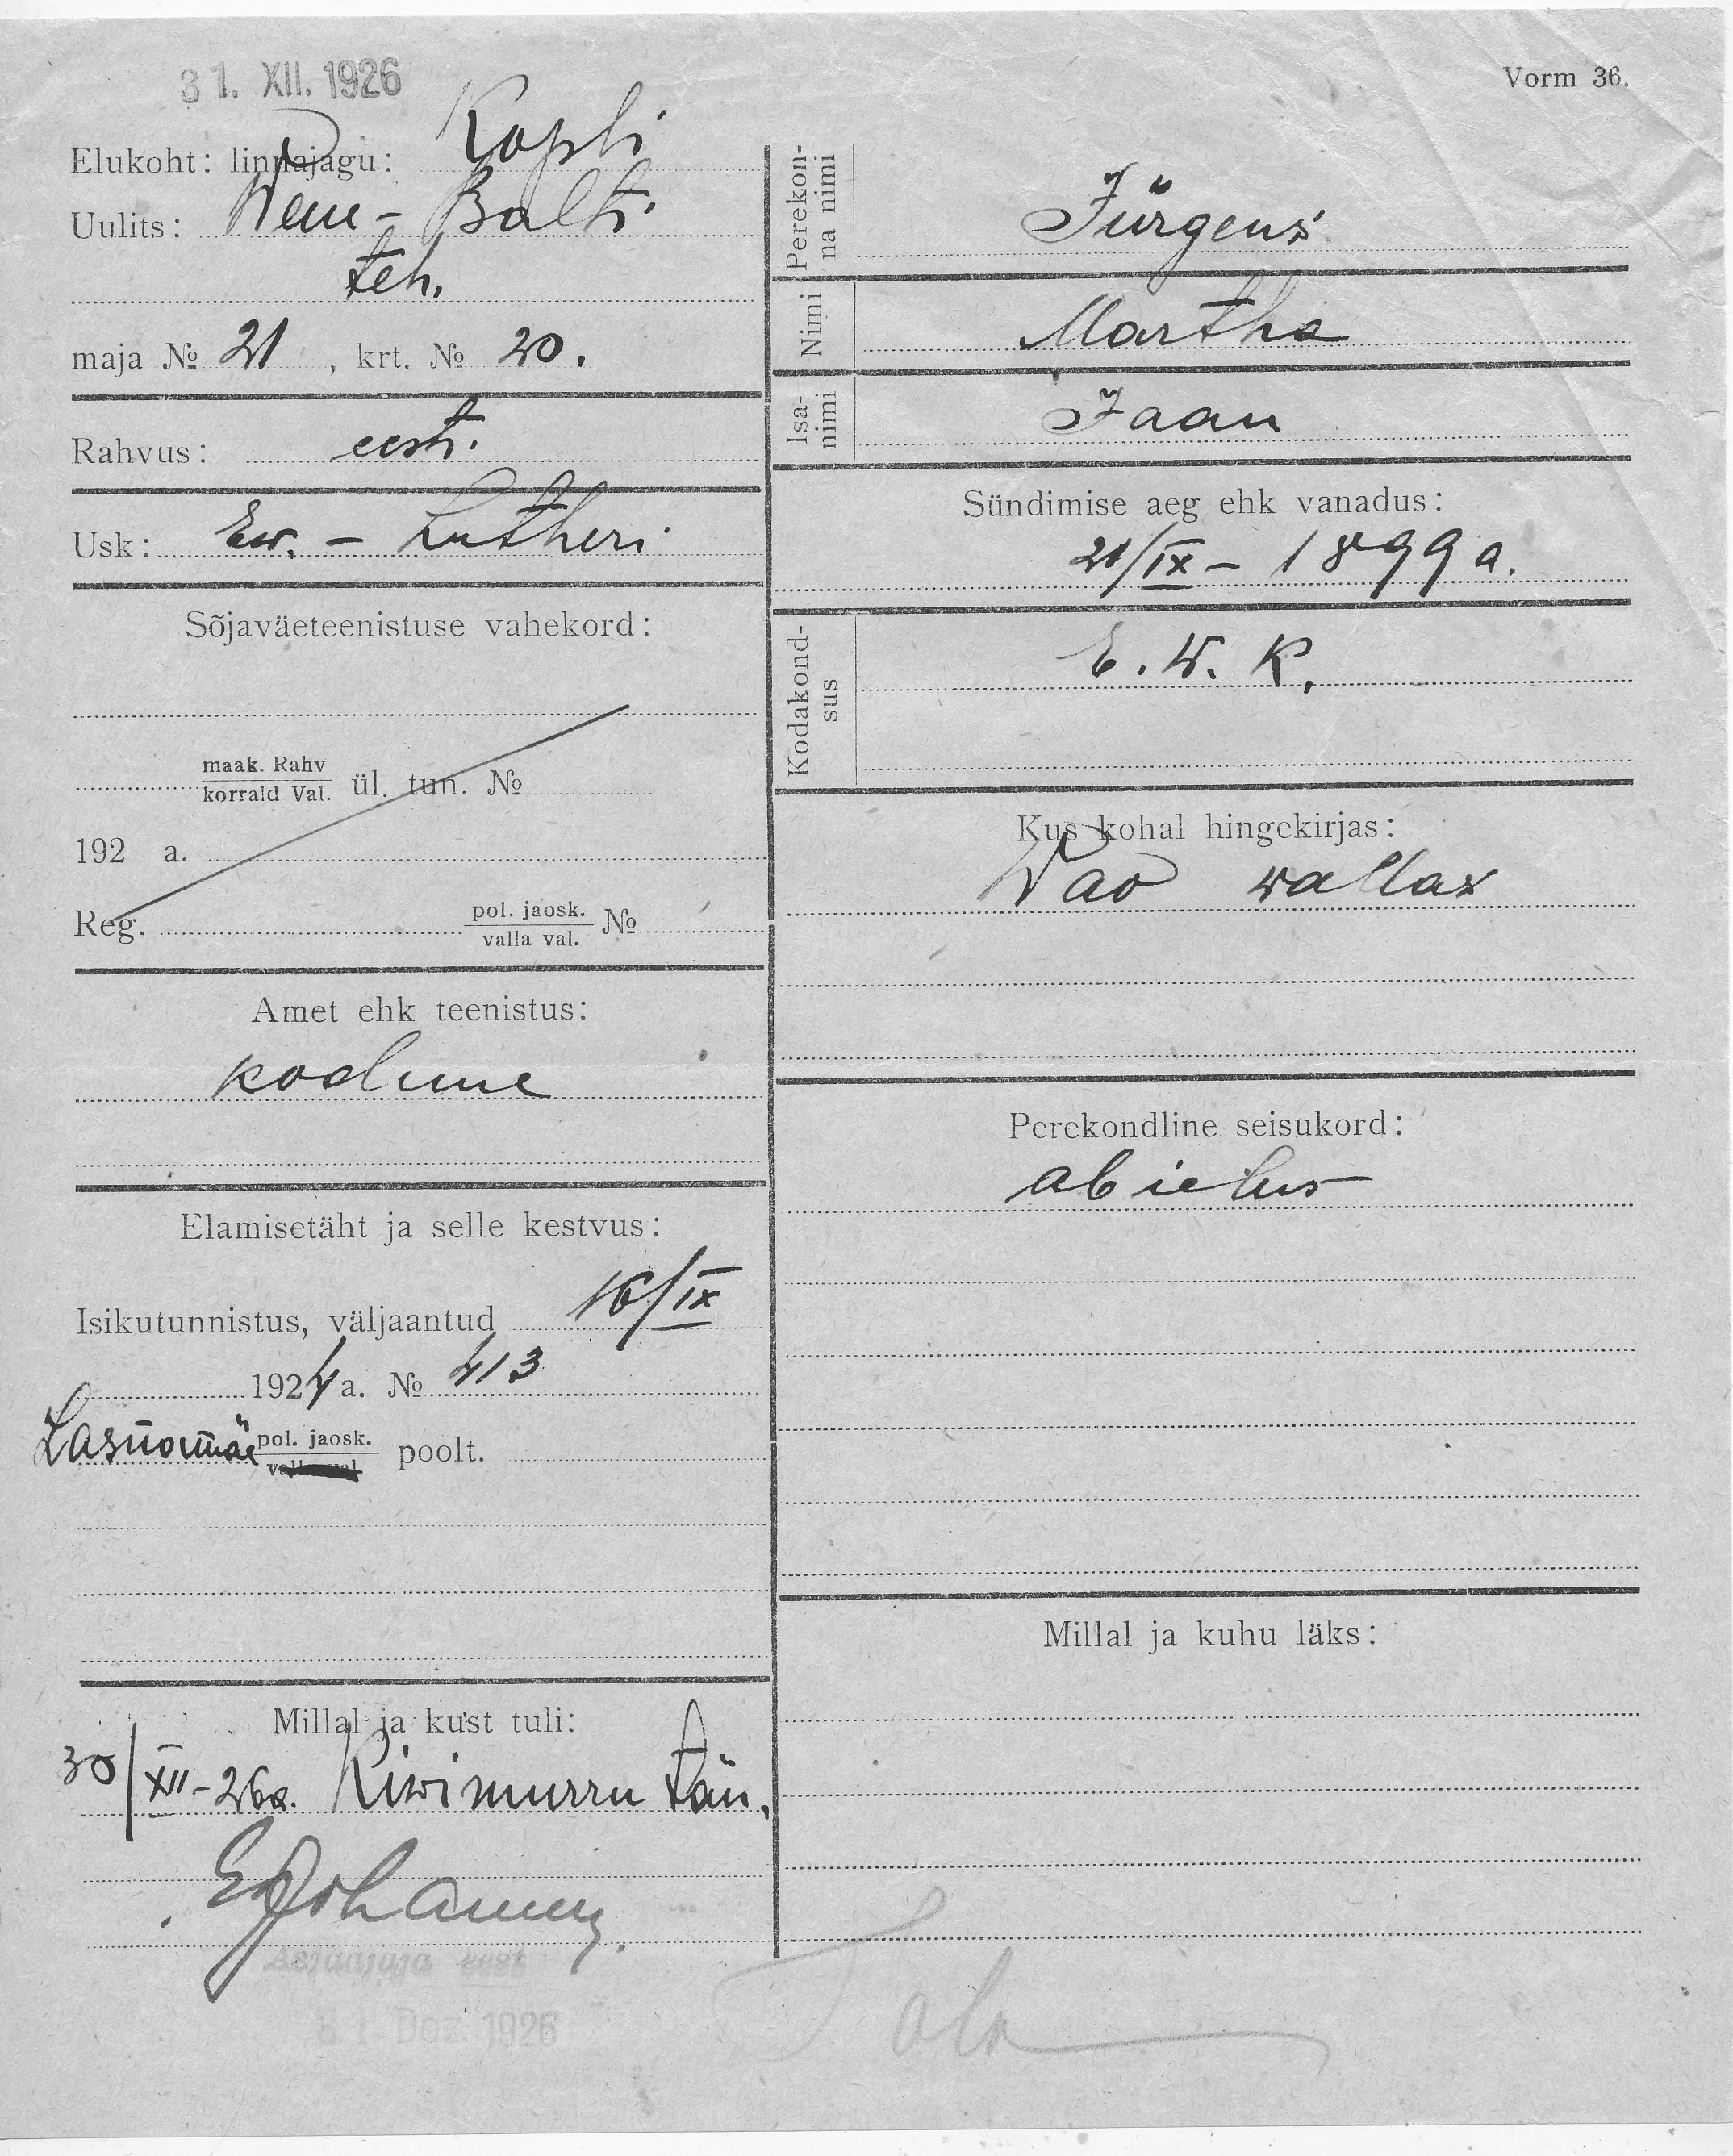 31. XII. 1926
Vorm 36.
Elukoht: linnajagu: Kopli
Uulits: Wene-Balti
teh.
maja № 21, krt. № 20.
Rahvus: eesti.
Usk: Ew. - Lutheri
Sõjaväeteenistuse vahekord:
maak. Rahv
korrald Val. ül. tun. №
192 a.
Reg. pol. jaosk. №
valla val.
Amet ehk teenistus:
kodune
Elamisetäht ja selle kestvus:
Isikutunnistus, väljaantud 16/IX
1924 a. № 413
Lasnamäe pol. jaosk. poolt.
valla val.
Millal ja kust tuli:
30/XII-26a. Kiwimurru tän.
Asjaajaja eest
31. Dez. 1926
Perekon-
na nimi
Jürgens
Nimi
Martha
Isa-
nimi
Jaan
Sündimise aeg ehk vanadus:
21/IX - 1899 a.
Kodakond-
sus
E. W. K.
Kus kohal hingekirjas:
Wao wallas
Perekondline seisukord:
abielus
Millal ja kuhu läks: